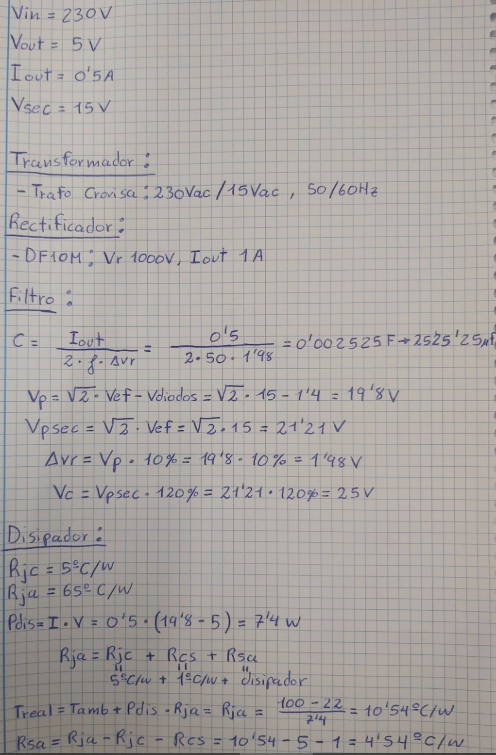 Vin = 230V
Vout = 5V
Iout = 0'5A
Vsec = 15V
Transformador:
- Trafo Crovisa: 230Vac/15Vac, 50/60Hz
Rectificador:
- DF10M: Vr 1000V, Iout 1A
Filtro:
C = Iout / 2·f·ΔVr = 0'5 / 2·50·1'98 = 0'002525F → 2525'25µf
Vp = √2 · Vef - Vdiodos = √2 · 15 - 1'4 = 19'8V
Vpsec = √2 · Vef = √2 · 15 = 21'21V
ΔVr = Vp · 10% = 19'8 · 10% = 1'98V
Vc = Vpsec · 120% = 21'21 · 120% = 25V
Disipador:
Rjc = 5ºC/W
Rja = 65ºC/W
Pdis = I·V = 0'5 · (19'8 - 5) = 7'4W
Rja = Rjc + Rcs + Rsa
5ºC/w + 1ºC/w + disipador
Treal = Tamb + Pdis · Rja = Rja = 100 - 22 / 7'4 = 10'54ºC/W
Rsa = Rja - Rjc - Rcs = 10'54 - 5 - 1 = 4'54ºC/W